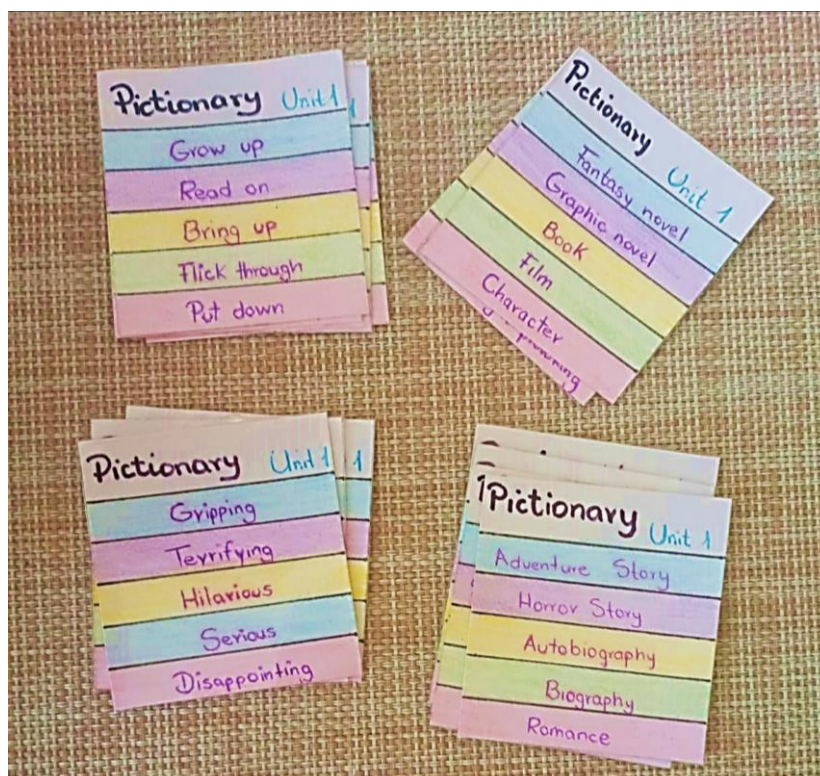 Pictionary Unit 1
Grow up
Read on
Bring up
Flick through
Put down
Pictionary Unit 1
Fantasy novel
Graphic novel
Book
Film
Character
Pictionary Unit 1
Gripping
Terrifying
Hilarious
Serious
Disappointing
1
Pictionary Unit 1
Adventure Story
Horror Story
Autobiography
Biography
Romance